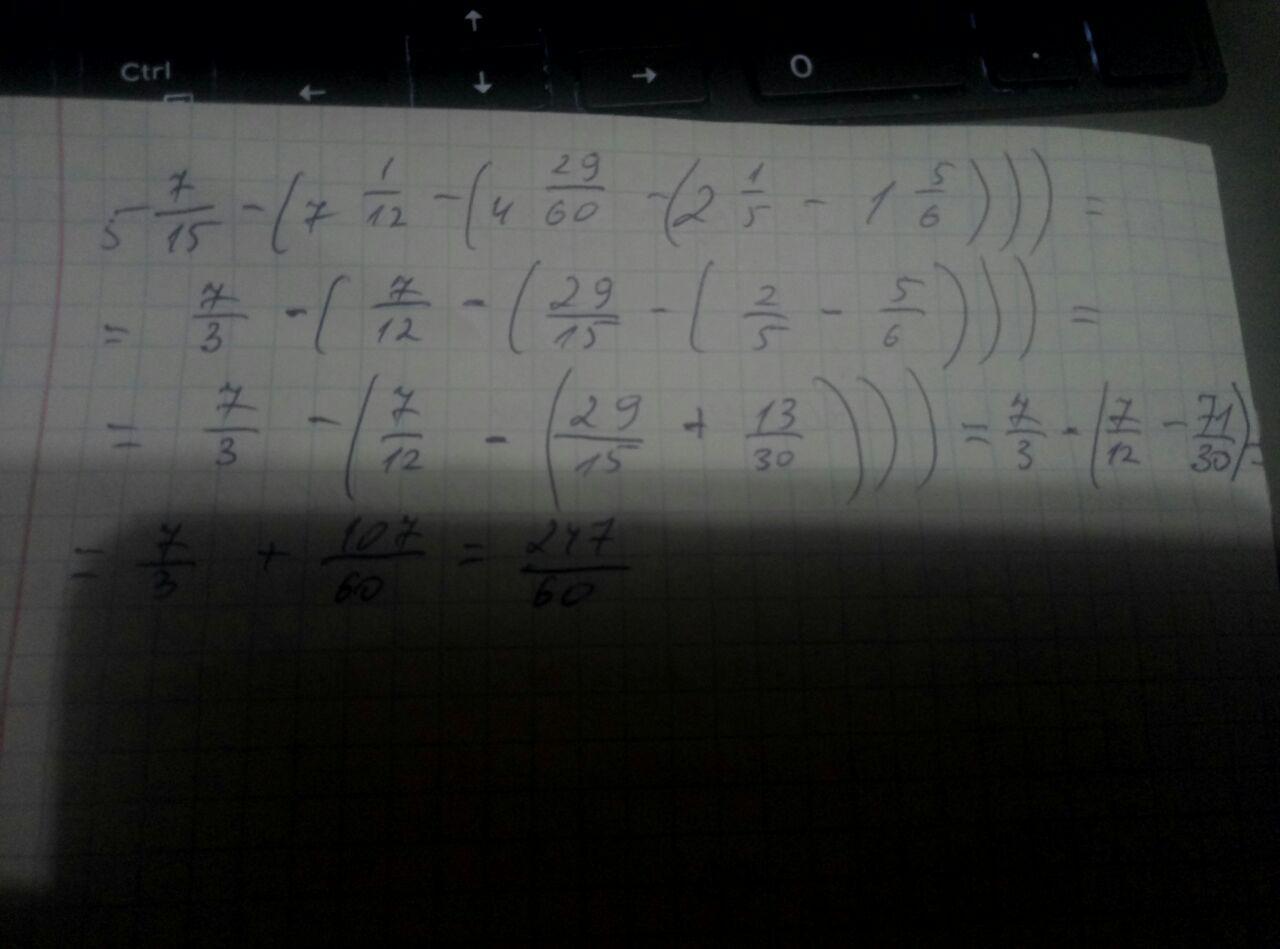 Ctrl ← ↑ ↓ → 0 .
5 7/15 - (7 1/12 - (4 29/60 - (2 1/5 - 1 5/6))) =
= 7/3 - (7/12 - (29/15 - (2/5 - 5/6))) =
= 7/3 - (7/12 - (29/15 + 13/30))) = 7/3 - (7/12 - 71/30) =
= 7/3 + 107/60 = 247/60